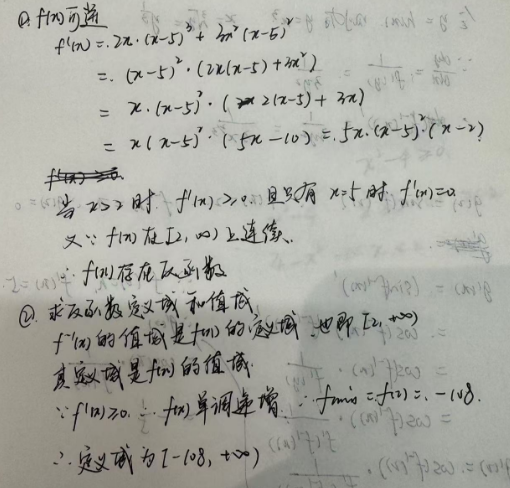 ①. f(x)可导
f'(x) = 2x·(x-5)³ + 3x²(x-5)²
= (x-5)²·(2x(x-5)+3x²)
= x·(x-5)²·(2(x-5)+3x)
= x(x-5)²·(5x-10) = 5x·(x-5)²(x-2)
f'(x)≥0.
当 x>2 时. f'(x)≥0. 且只有 x=5 时. f'(x)=0
又∵ f(x) 在[2, ∞) 上连续.
∴ f(x)存在反函数
②. 求反函数定义域和值域
f⁻¹(x) 的值域是f(x)的定义域. 也即 [2, +∞)
其定义域是f(x)的值域.
∵ f'(x)≥0. ∴ f(x)单调递增. ∴ fmin = f(2) = -108.
∴ 定义域为 [-108, +∞)